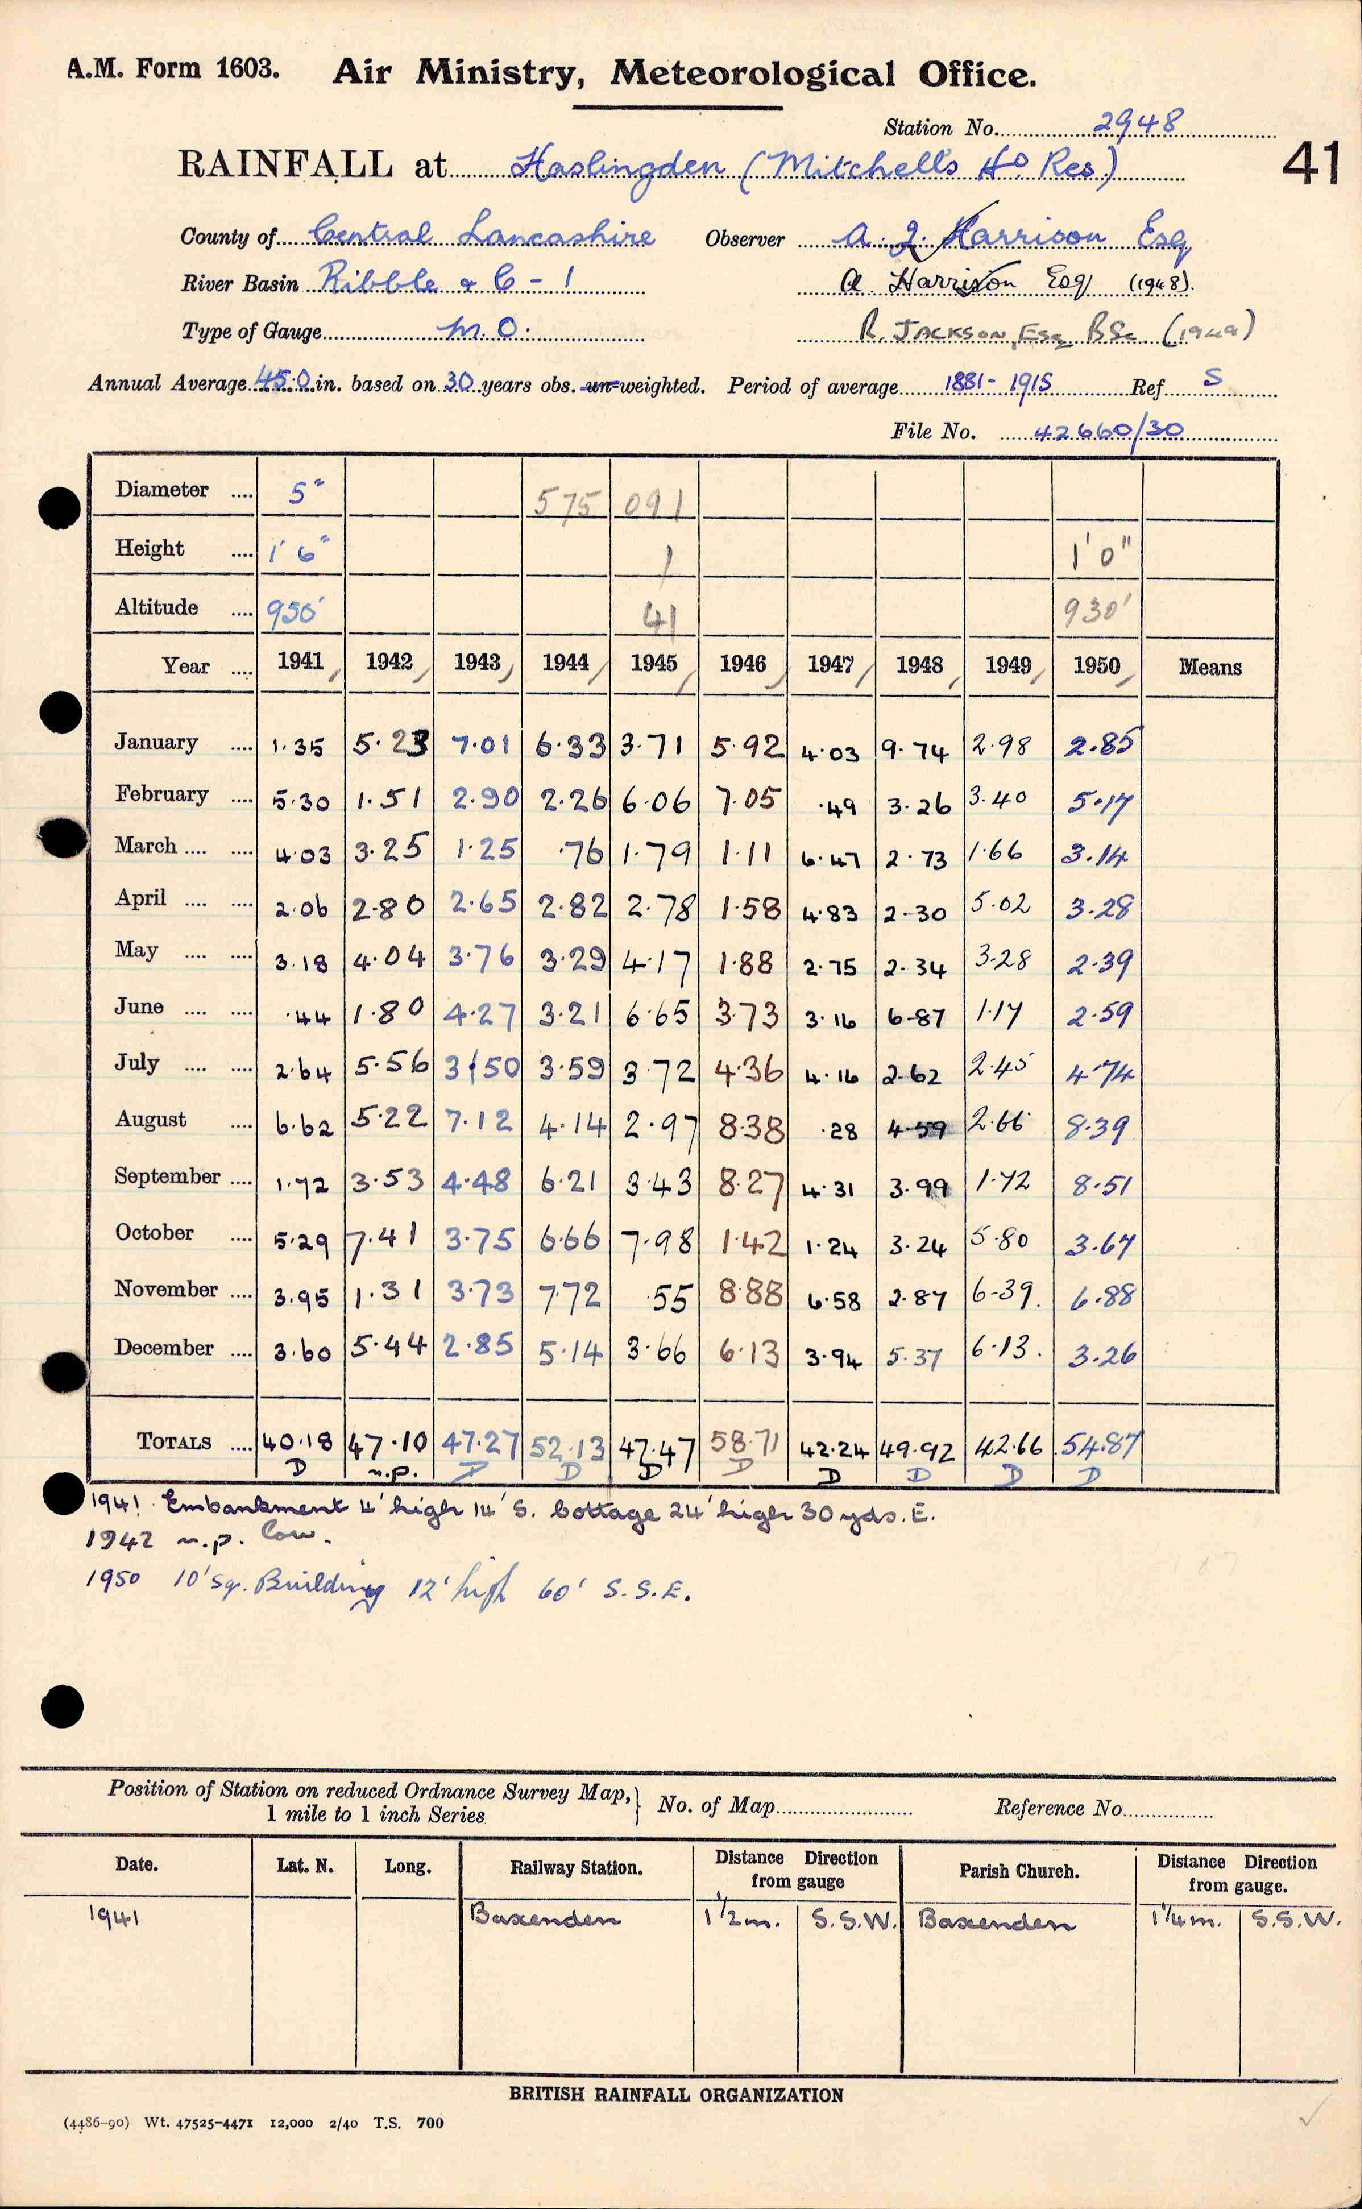 A.M. Form 1603. Air Ministry, Meteorological Office.
Station No. 2948
RAINFALL at Haslingden (Mitchell's Ho Res) 41
County of Central Lancashire Observer A. J. Harrison Esq
River Basin Ribble & C - 1 A. Harrison Esq (1948).
Type of Gauge M.O. R. JACKSON, Esq BSc (1949)
Annual Average 45.0 in. based on 30 years obs. un-weighted. Period of average 1881-1915 Ref S
File No. 42660/30
Diameter .... 5" 575 091
Height .... 1' 6" 1 1' 0"
Altitude .... 950' 41 930'
Year .... 1941 1942 1943 1944 1945 1946 1947 1948 1949 1950 Means
January .... 1.35 5.23 7.01 6.33 3.71 5.92 4.03 9.74 2.98 2.85
February .... 5.30 1.51 2.90 2.26 6.06 7.05 .49 3.26 3.40 5.17
March .... .... 4.03 3.25 1.25 .76 1.79 1.11 6.47 2.73 1.66 3.14
April .... .... 2.06 2.80 2.65 2.82 2.78 1.58 4.83 2.30 5.02 3.28
May .... .... 3.18 4.04 3.76 3.29 4.17 1.88 2.75 2.34 3.28 2.39
June .... .... .44 1.80 4.27 3.21 6.65 3.73 3.16 6.87 1.17 2.59
July .... .... 2.64 5.56 3.50 3.59 3.72 4.36 4.16 2.62 2.45 4.74
August .... 6.62 5.22 7.12 4.14 2.97 8.38 .28 4.59 2.66 8.39
September .... 1.72 3.53 4.48 6.21 3.43 8.27 4.31 3.99 1.72 8.51
October .... 5.29 7.41 3.75 6.66 7.98 1.42 1.24 3.24 5.80 3.67
November .... 3.95 1.31 3.73 7.72 .55 8.88 6.58 2.87 6.39. 6.88
December .... 3.60 5.44 2.85 5.14 3.66 6.13 3.94 5.37 6.13. 3.26
TOTALS .... 40.18 47.10 47.27 52.13 47.47 58.71 42.24 49.92 42.66 54.87
D n.p. D D D D D D D D
1941. Embankment 4' high 14' S. Cottage 24' high 30 yds. E.
1942 n.p. Cow.
1950 10' Sq. Building 12' high 60' S.S.E.
Position of Station on reduced Ordnance Survey Map, 1 mile to 1 inch Series } No. of Map Reference No.
Date. Lat. N. Long. Railway Station. Distance Direction from gauge Parish Church. Distance Direction from gauge.
1941 Baxenden 1 1/2 m. S.S.W. Baxenden 1 1/4 m. S.S.W.
BRITISH RAINFALL ORGANIZATION
(4486-90) Wt. 47525-4471 12,000 2/40 T.S. 700